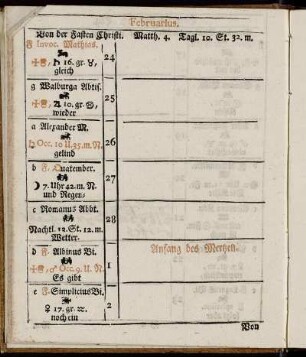 Februarius.
Von der Fasten Christi. Matth. 4. Tagl. 10. St. 32. m.
F Invoc. Matthias.
♄ 16. gr.
gleich
24
g Walburga Abtis.
♃ 10. gr.
wieder
25
a Alexander M.
♄ Occ. 10 U. 25. m. N.
gelind
26
b F. Quatember.
☽ 7. Uhr 42. m. N.
und Regen-
27
c Romanus Abbt.
Nachtl. 12. St. 12. m.
Wetter-
28
d F. Albinus Bi.
Occ. 9. U. N.
Es gibt
1
Anfang des Mertzen.
e F. Simplicius Bi.
♀ 17. gr. ♒
noch ein
2
Von